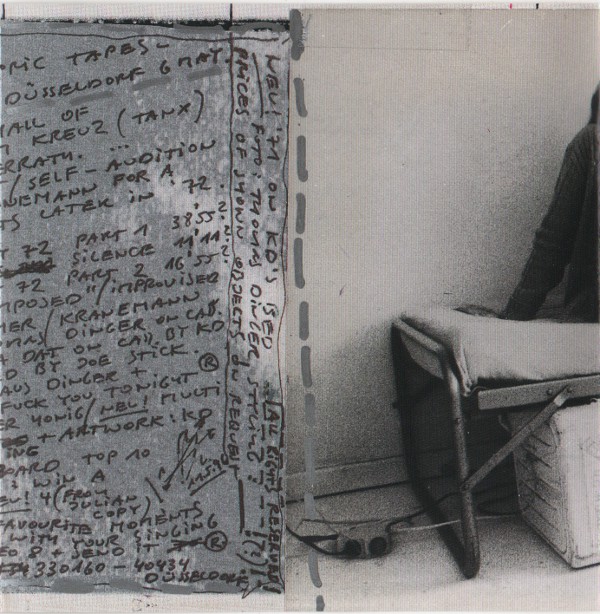 ORIC TAPES -
DÜSSELDORF 6 MAY.
HALL OF
KREUZ (TANX)
ERRATH. ...
/ SELF - AUDITION
ANEMANN FOR A
TS LATER IN '72.
72 PART 1 38'55"?
SILENCE 11'11"?
72 PART 2 16'55"?
MPOSED "/IMPROVISED
MER / KRANEMANN
MAS DINGER ON CAS.
A DAT ON CAS. BY KD
D BY JOE STICK.
AUS DINGER +
FUCK YOU TONIGHT ®
ER YONIG / NEU! MULTI
+ ARTWORK: KD
ING
BOARD TOP 10
: WIN A
EU! 4 (FROM
JULIAN
COPY)
FAVOURITE MOMENTS
WITH YOUR SINGING
EO 8 + SEND IT ®
330160 - 40434
DÜSSELDORF
NEU! '71 ON KD'S BED
FOTO: THOMAS DINGER, STYLING?
PRICES OF SHOWN OBJECTS ON REQUEST
ALL RIGHTS RESERVED!